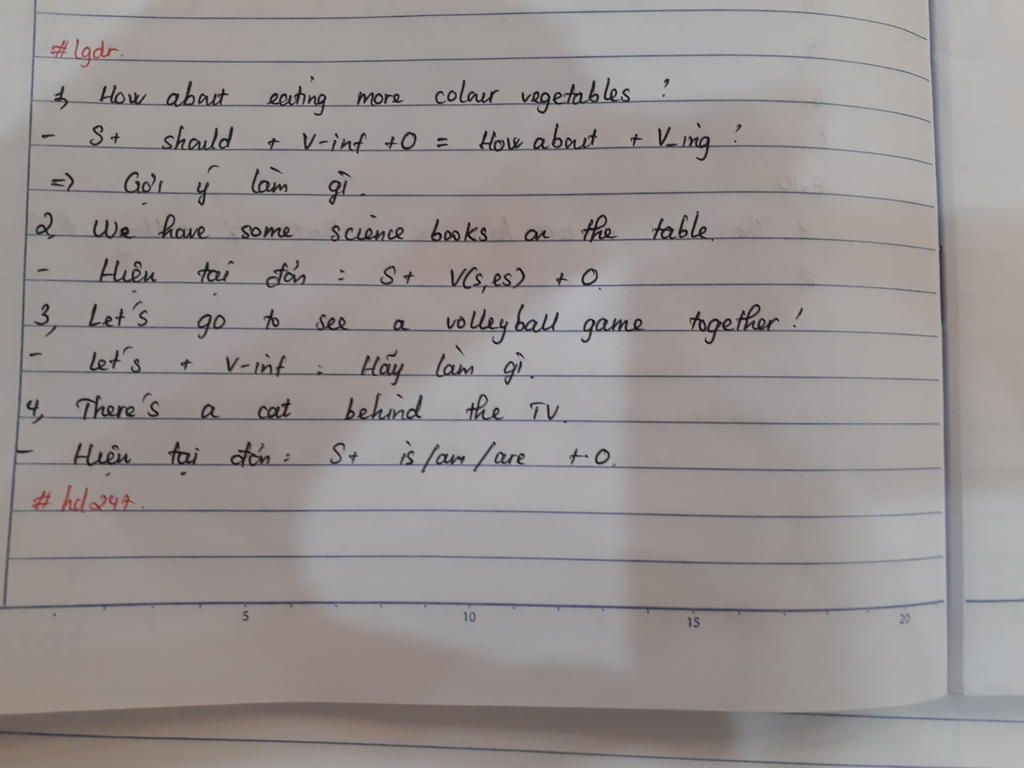 #lgdr.
1, How about eating more colour vegetables ?
- S+ should + V-inf +O = How about + V_ing ?
=> Gợi ý làm gì.
2, We have some science books on the table.
- Hiện tại đơn : S+ V(s,es) + O.
3, Let's go to see a volleyball game together!
- let's + V-inf : Hãy làm gì.
4, There's a cat behind the TV.
- Hiện tại đơn : S+ is/am/are + O.
# hd247.
5 10 15 20